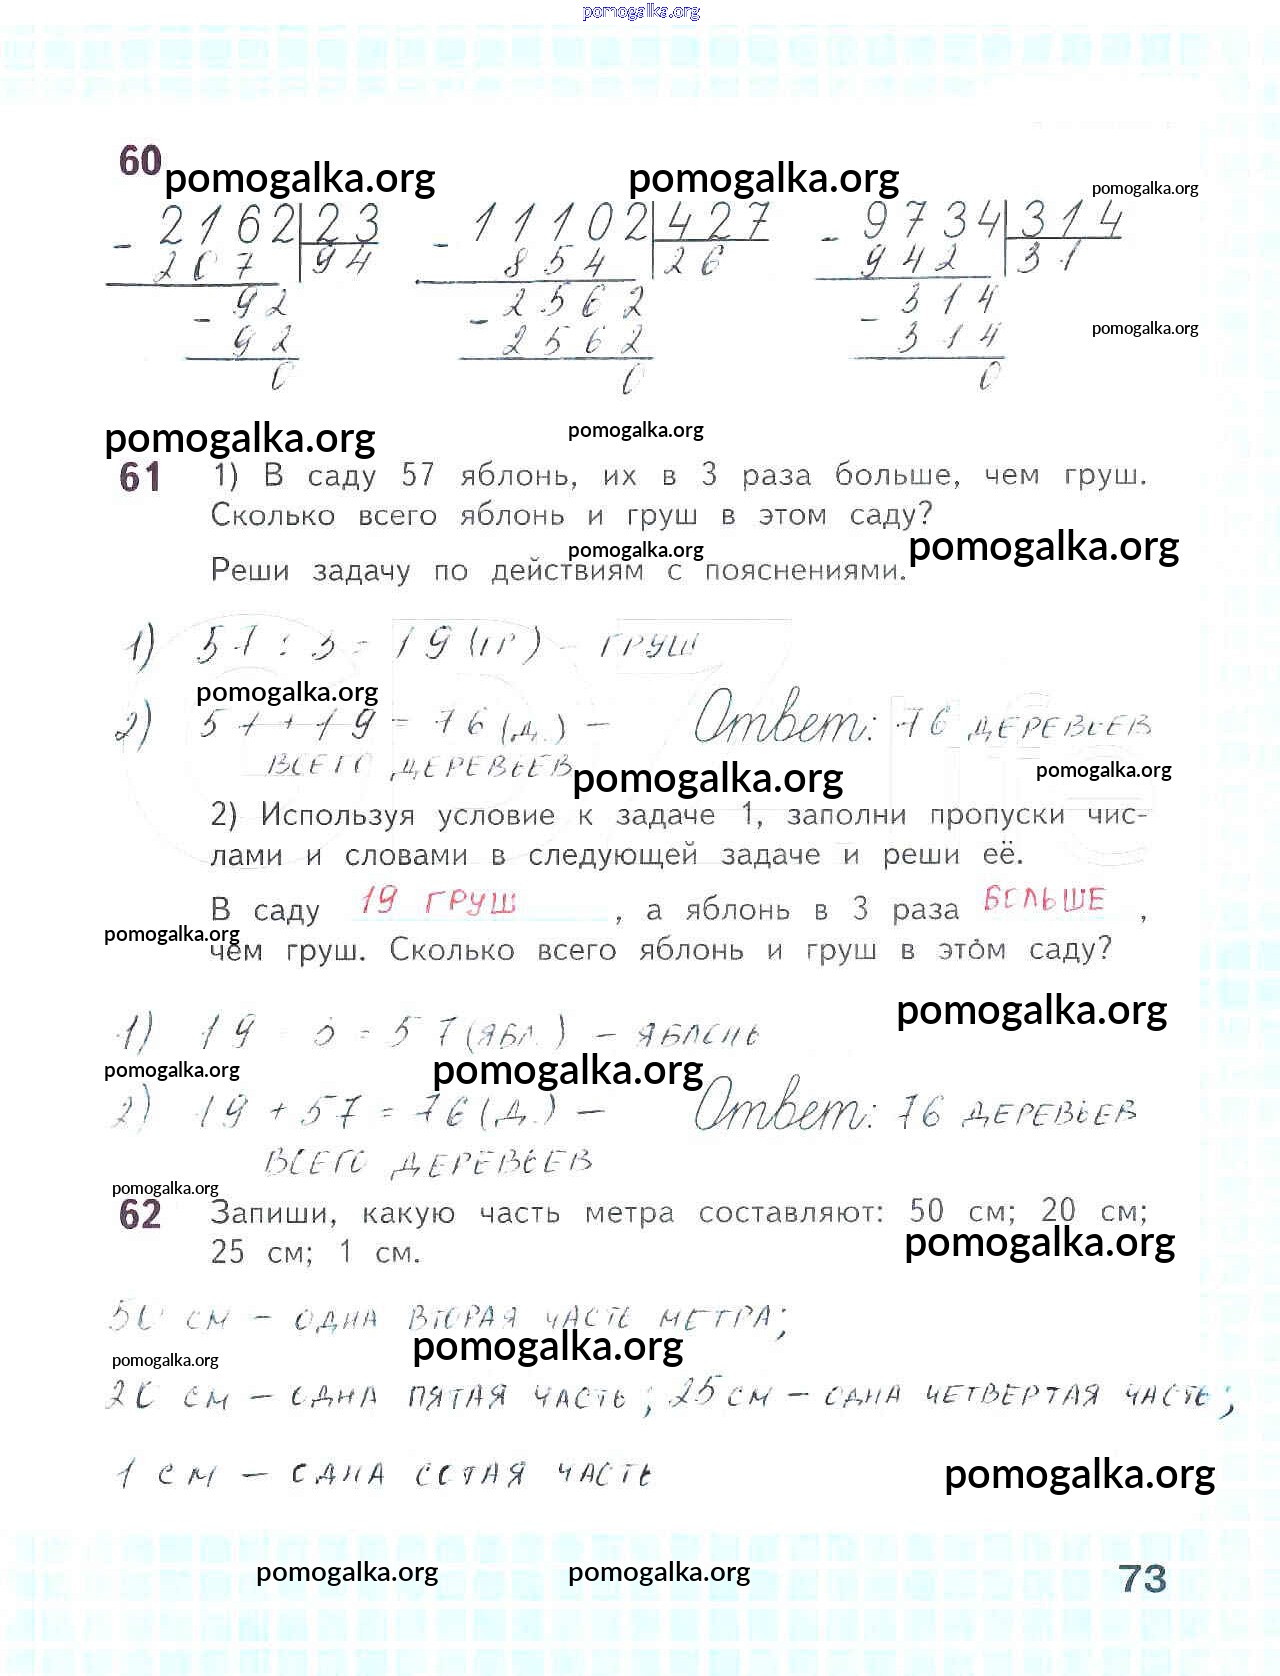 pomogalka.org
60
pomogalka.org pomogalka.org pomogalka.org
- 2162 23 - 11102 427 - 9734 314
207 94 854 26 942 31
- 92 - 2562 - 314
92 2562 314 pomogalka.org
0 0 0
pomogalka.org pomogalka.org
61 1) В саду 57 яблонь, их в 3 раза больше, чем груш.
Сколько всего яблонь и груш в этом саду?
pomogalka.org pomogalka.org
Реши задачу по действиям с пояснениями.
1) 57 : 3 = 19 (гр) - груш
pomogalka.org
2) 57 + 19 = 76 (д.) - Ответ: 76 деревьев
всего деревьев
pomogalka.org pomogalka.org
2) Используя условие к задаче 1, заполни пропуски чис-
лами и словами в следующей задаче и реши её.
В саду 19 груш , а яблонь в 3 раза больше ,
pomogalka.org
чем груш. Сколько всего яблонь и груш в этом саду?
pomogalka.org
1) 19 · 3 = 57 (ябл.) - яблонь
pomogalka.org pomogalka.org
2) 19 + 57 = 76 (д.) - Ответ: 76 деревьев
всего деревьев
pomogalka.org
62 Запиши, какую часть метра составляют: 50 см; 20 см;
25 см; 1 см.
pomogalka.org
50 см - одна вторая часть метра;
pomogalka.org pomogalka.org
20 см - одна пятая часть; 25 см - одна четвертая часть;
1 см - одна сотая часть
pomogalka.org
pomogalka.org pomogalka.org
73